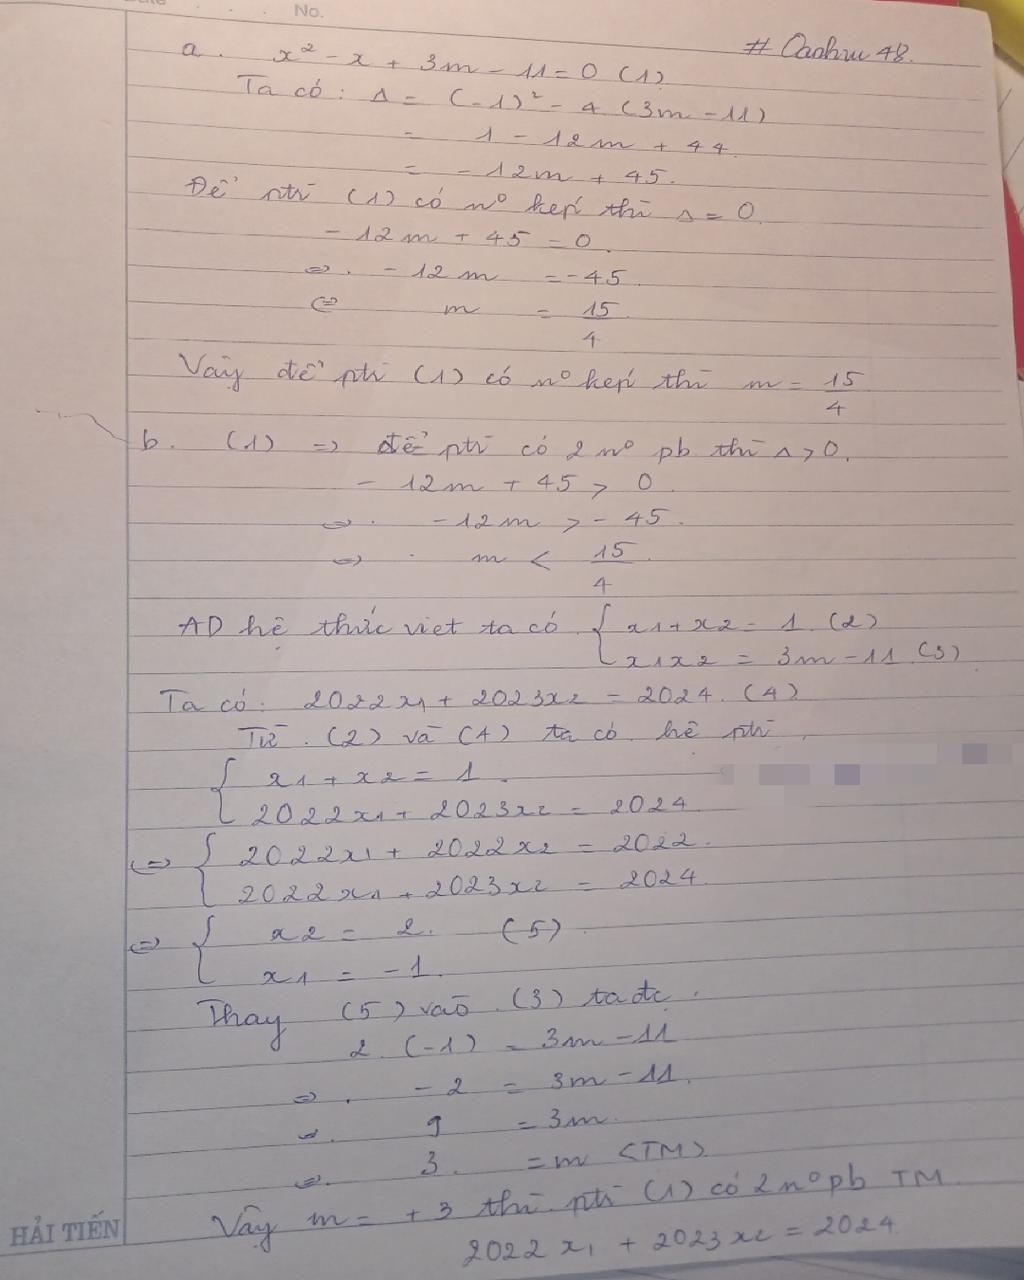 No.
# Oanhuu 48.
a. x² - x + 3m - 11 = 0 (1)
Ta có: Δ = (-1)² - 4 (3m - 11)
= 1 - 12m + 44
= - 12m + 45.
Để ptr (1) có n⁰ kép thì Δ = 0
- 12m + 45 = 0
⇔. - 12m = -45
⇔ m = 15/4
Vậy để ptr (1) có n⁰ kép thì m = 15/4
b. (1) => để ptr có 2 n⁰ pb thì Δ > 0.
- 12m + 45 > 0
⇔. -12m > - 45.
⇔ . m < 15/4
AD hệ thức viet ta có { x1 + x2 = 1 (2)
x1x2 = 3m - 11 (3)
Ta có: 2022x1 + 2023x2 = 2024. (4)
Từ (2) và (4) ta có hệ ptr
{ x1 + x2 = 1
2022x1 + 2023x2 = 2024
⇔ { 2022x1 + 2022x2 = 2022.
2022x1 + 2023x2 = 2024
⇔ { x2 = 2. (5)
x1 = -1
Thay (5) vào (3) ta đc
2. (-1) = 3m - 11
⇔. - 2 = 3m - 11.
⇔. 9 = 3m
⇔. 3. = m (TM)
Vậy m = +3 thì ptr (1) có 2 n⁰ pb TM
2022 x1 + 2023 x2 = 2024
HẢI TIẾN